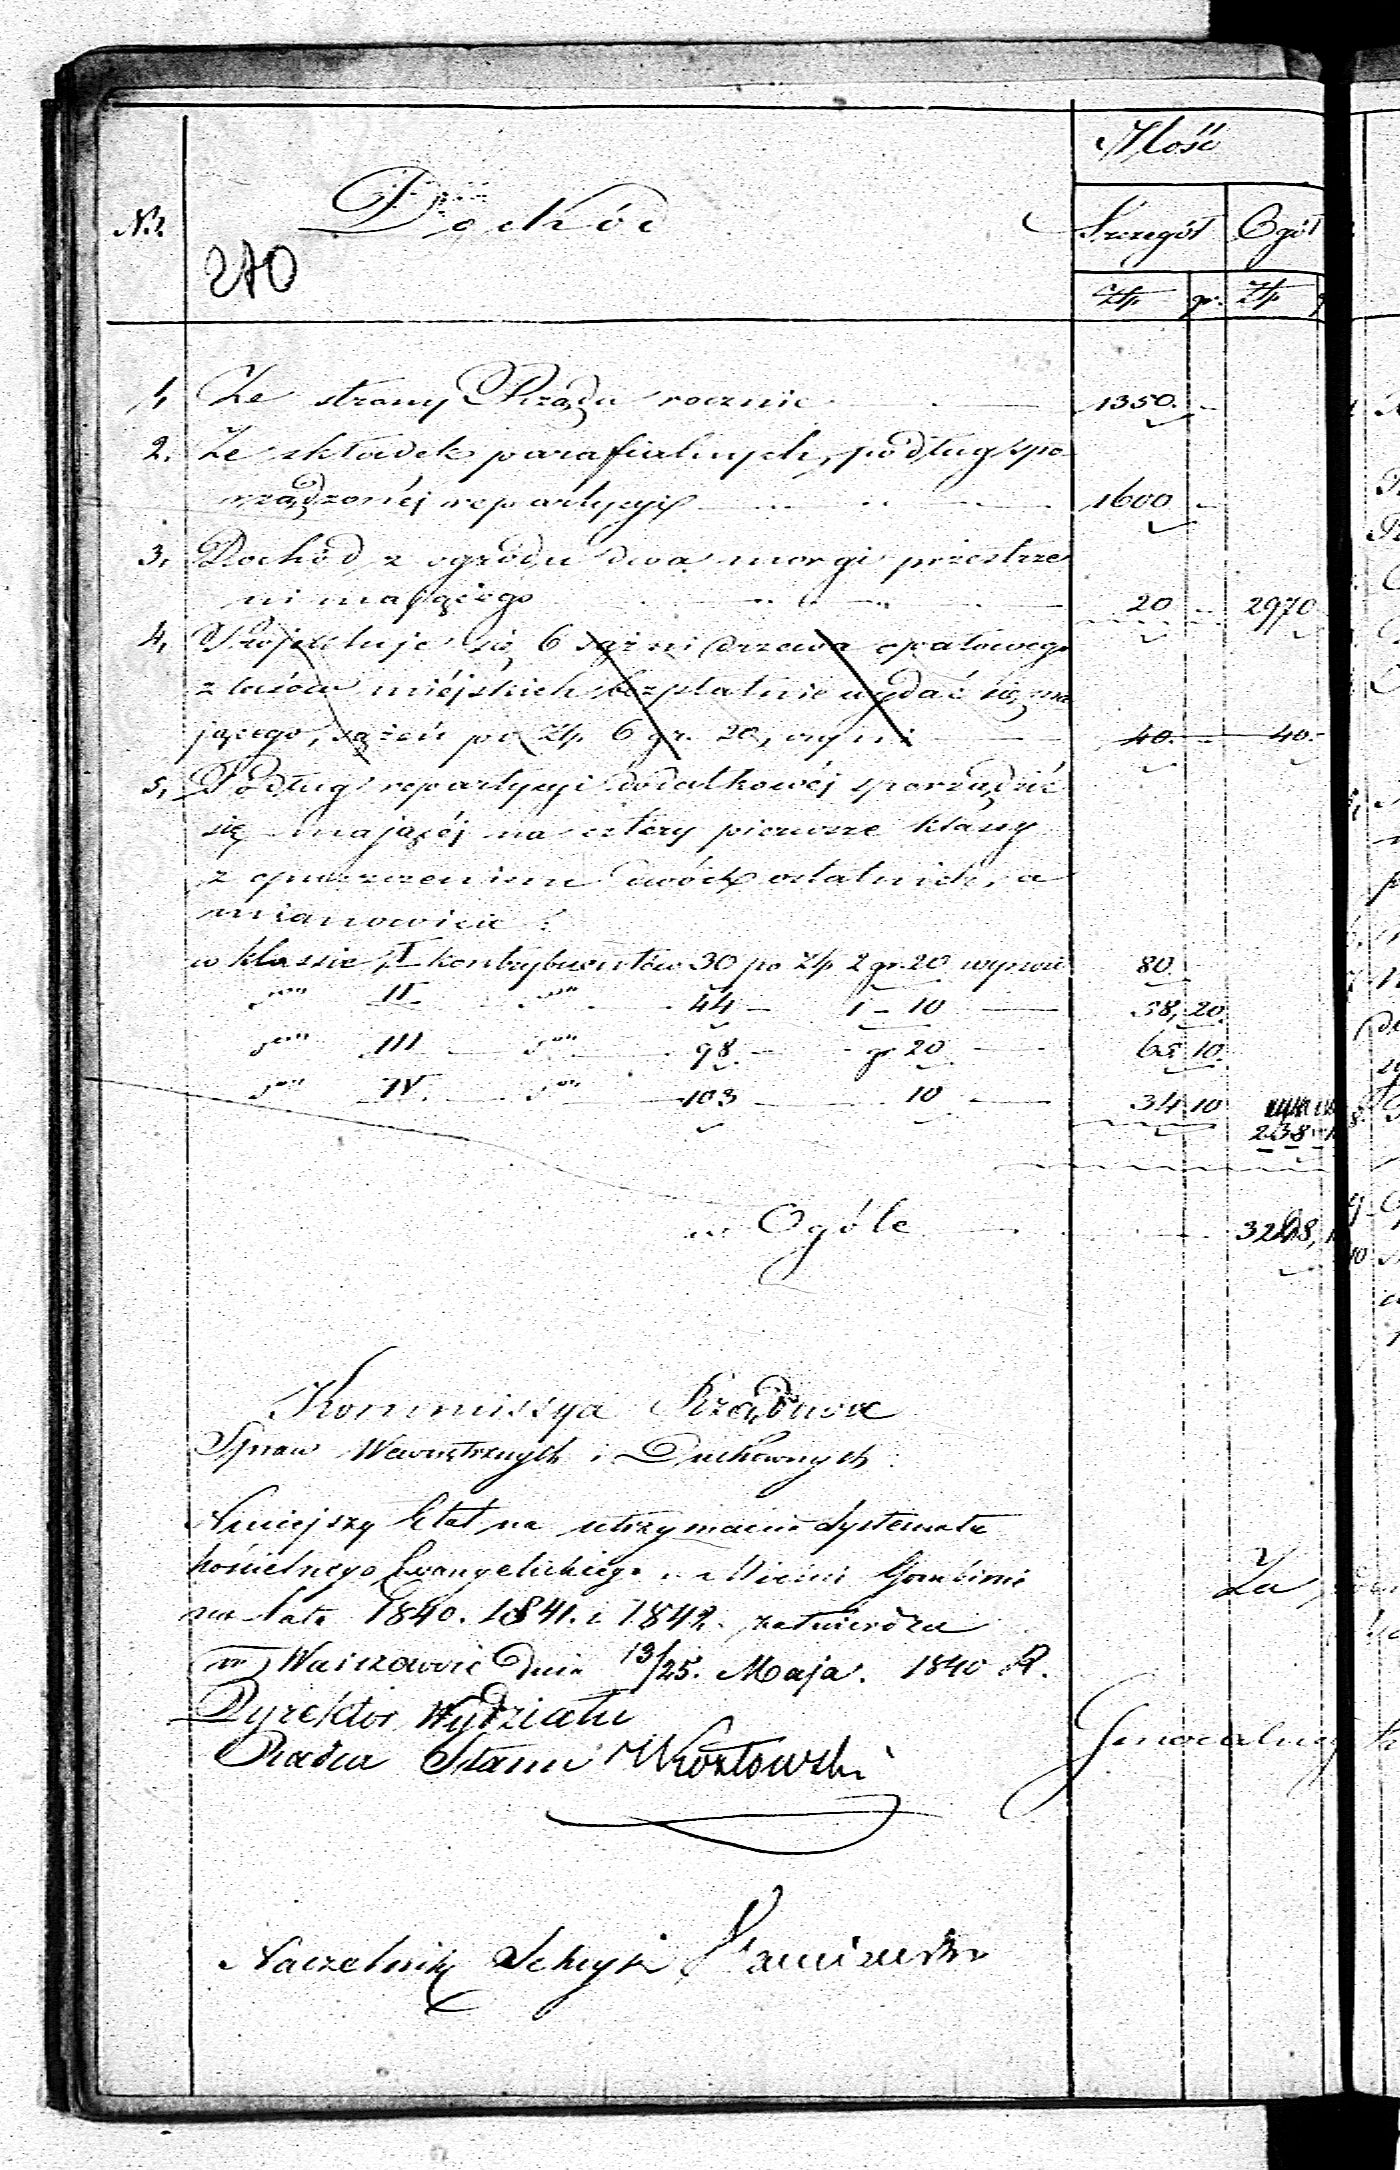 Ilość
Nr. Dochód Szczegół Ogół
270
Złp gr. Złp
1, Ze strony Rządu rocznie 1350. -
2. Ze składek parafialnych, podług spo
rządzonéj repartycyi 1600 -
3, Dochód z ogrodu dwa morgi przestrze
ni mającego 20 - 2970
4, Projektuje się 6 sążni drzewa opałowego
z lasów miéjskich bezpłatnie wydać się ma
jącego, sążeń po Złp 6 gr. 20, czyni 40. - 40.-
5, Podług repartycyi dodatkowéj sporządzić
się mającéj na cztery pierwsze klassy
z opuszczeniem dwóch ostatnich, a
mianowicie:
w klassie I kontrybuentów 30 po Złp 2 gr. 20 wynosi 80
II 44 - 1 - 10 58, 20.
III 98 - gr 20 65 10.
IV. 103 10 34 10
238
w Ogóle 3208,
Kommissya Rządowa
Spraw Wewnętrznych i Duchownych
Niniejszy Etat na utrzymanie Systemata
kościelnego Ewangelickiego w Mieście Gombinie
na lata 1840. 1841. i 1842. zatwierdza
w Warszawie dnia 13/25. Maja. 1840 R.
Za
Dyrektor Wydziału
Radca Stanu Wrozłowski
Naczelnik Sekcyi